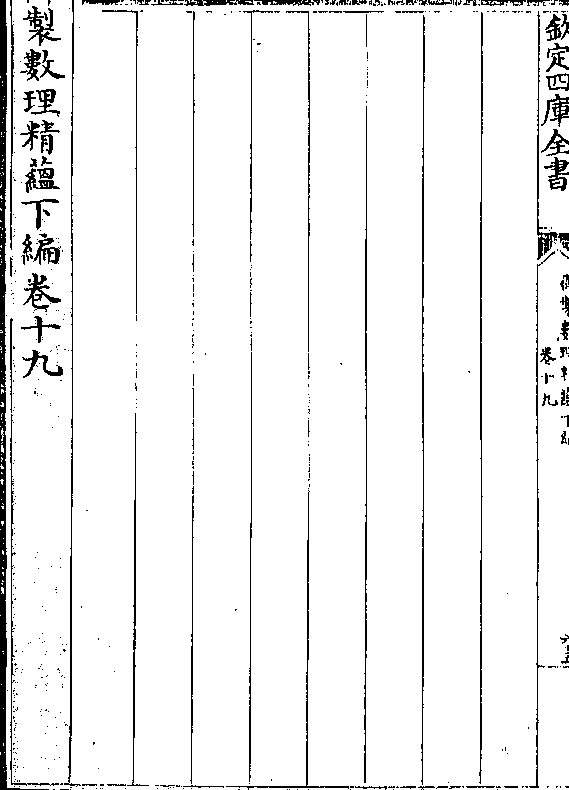 欽定四庫全書
御製數理精藴下編
卷十九
製數理精藴下編卷十九